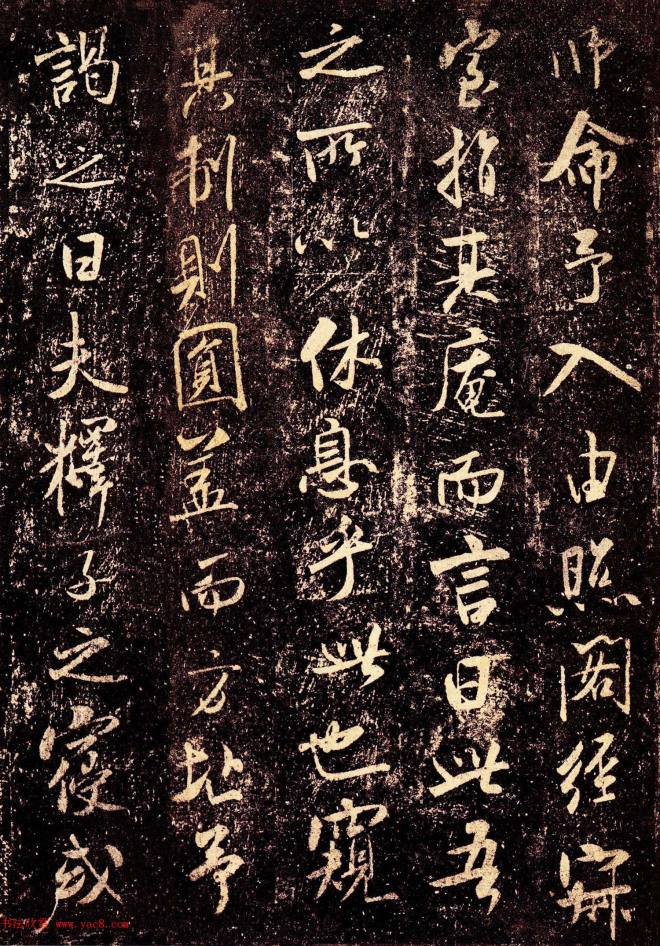 師命予入由照閣經寂
室指其庵而言曰此吾
之所以休息乎此也窺
其制則圓盖而方址予
謁之曰夫釋子之寢或
书法欣赏 www.yac8.com